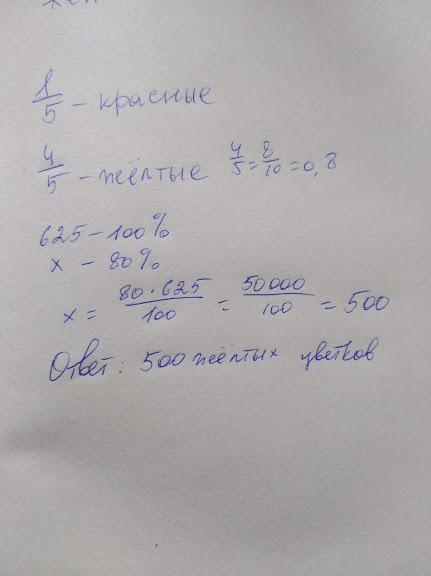 1/5 – красные
4/5 – жёлтые 4/5 = 8/10 = 0,8
625 – 100%
x – 80%
x = 80·625/100 = 50000/100 = 500
Ответ: 500 жёлтых цветков